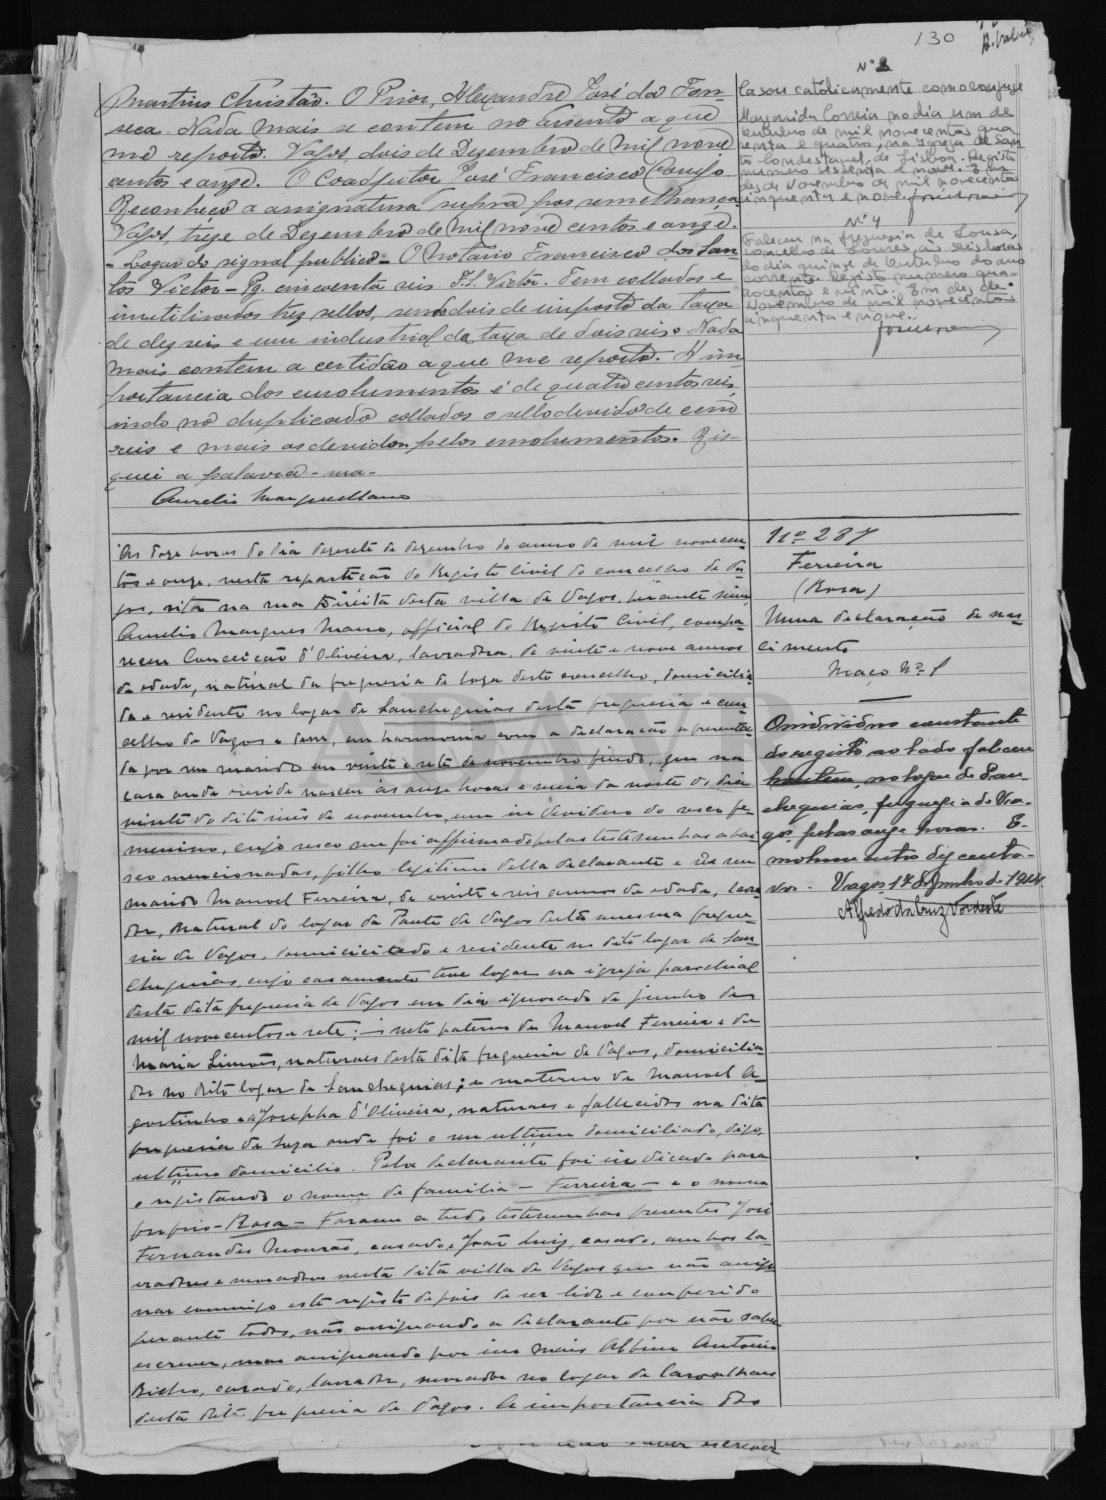 130
Martins Christão. O Prior, Alexandre José da Fon-
seca. Nada mais se contem no assento a que
me reporto. Vagos, dois de Dezembro de mil nove
centos e onze. O Coadjutor José Francisco
Reconheço a assignatura supra por semelhança
Vagos, treze de Dezembro de mil nove centos e onze.
- Logar do signal publico - O Notario Francisco dos San-
tos Victor - Pg. cincoenta reis. F. S. Victor. Tem collados e
inutilisados trez sellos, sendo dois de imposto da taxa
de dez reis e um industrial da taxa de dois reis. Nada
mais contem a certidão a que me reporto. A im
portancia dos emolumentos é de quatro centos reis,
indo no duplicado collados o sello devido de cem
reis e mais as devidos pelos emolumentos. Ris-
quei a palavra - ma -
Aurelio Marques Mano
Nº 3
Casou catolicamente com o conjuge
Margarida Correia no dia um de
Outubro de mil novecentos qua
renta e quatro, na Igreja de San
to Condestavel, de Lisboa. Registo
numero sessenta e nove. Em
dez de Novembro de mil novecentos
cinquenta e nove.
Nº 4
Faleceu na freguesia de Lousa,
concelho de Loures, ás seis horas
do dia quinze de Outubro do ano
corrente. Registo numero qua-
trocentos e vinte. Em dez de
Novembro de mil novecentos
cinquenta e nove.
As doze horas do dia dezesete de dezembro do anno de mil novecen-
tos e onze, nesta repartição do Registo Civil do concelho de Va-
gos, sita na rua Direita desta villa de Vagos, perante mim,
Aurelio Marques Mano, official do Registo Civil, compa-
receu Conceição d'Oliveira, lavradora, de vinte e nove annos
de edade, natural da freguesia de Soza deste concelho, domicilia-
da e residente no logar de Sanchequias desta freguesia e con-
celho de Vagos e disse, em harmonia com a declaração apresenta-
da por seu marido em vinte e sete de novembro findo, que na
casa onde reside nasceu ás onze horas e meia da noite do dia
vinte do dito mês de novembro, um individuo do sexo fe-
menino, cujo sexo me foi affirmado pelas testemunhas abai-
xo mencionadas, filho legitimo della declarante e de seu
marido Manuel Ferreira, de vinte e seis annos de edade, lavra
dor, natural do logar da Ponte de Vagos desta mesma fregue-
sia de Vagos, domiciliado e residente no dito logar de San-
chequias, cujo casamento teve logar na igreja parochial
desta dita freguesia de Vagos em dia ignorado de junho de
mil novecentos e sete; é neto paterno de Manuel Ferreira e de
Maria Simões, naturaes desta dita freguesia de Vagos, domicilia-
dos no dito logar de Sanchequias; e materno de Manuel A-
gostinho e de Josepha d'Oliveira, naturaes e fallecidos na dita
freguesia de Soza onde foi o seu ultimo domiciliado, digo,
ultimo domicilio. Pela declarante foi indicado para
o registando o nome de familia - Ferreira - e o nome
proprio - Rosa - Foram a tudo testemunhas presentes José
Fernandes Mourão, casado, e João Luiz, casado, ambos la-
vradores e moradores nesta dita villa de Vagos que vão assig-
nar commigo este registo depois de ser lido e conferido
perante todos, não assignando a declarante por não saber
escrever, mas assignando por ella mais Albino Antonio
casado, lavrador, morador no logar de
desta dita freguesia de Vagos. A importancia dos
Nº 287
Ferreira
(Rosa)
Numa declaração de nas-
cimento
Maço Nº 1
O individuo constante
do registo ao lado faleceu
hontem, no logar de San-
chequias, freguesia de Va-
gos, pelas onze horas. E-
molumentos dez centa-
vos. Vagos 17 de Junho de 1914
Alfredo da Cruz
saber escrever